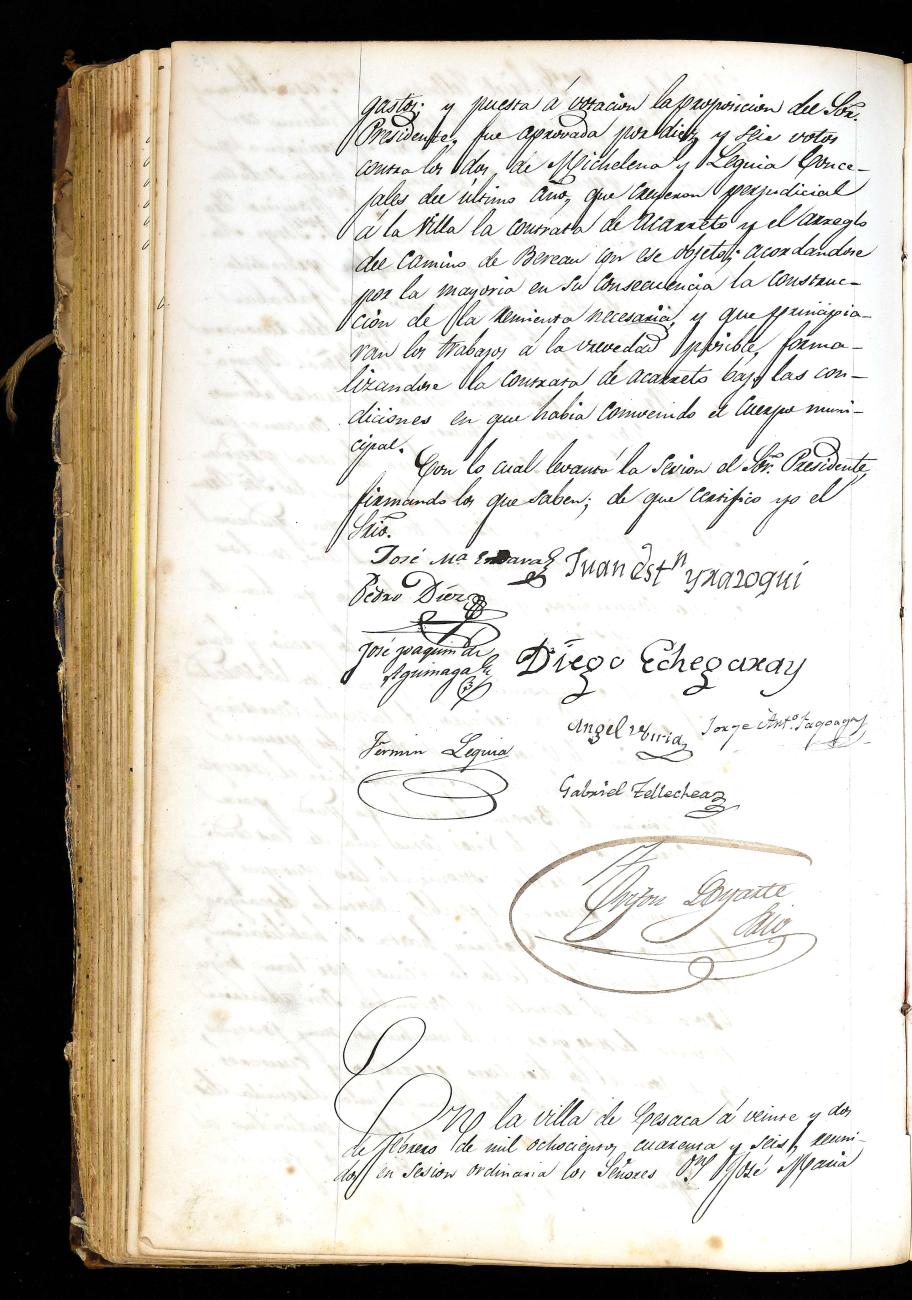 gastos; y puesta á votacion la proposicion del Sor.
Presidente, fue aprovada por diez y seis votos
contra los dos de Michelena y Leguia Conce-
jales del último año, que creyeron perjudicial
á la Villa la contrata de acarreto y el arreglo
del camino de Bereau con ese objeto; acordandose
por la mayoria en su consecuencia la construc-
cion de la remienta necesaria, y que principia-
ran los trabajos á la vrevedad posible, forma-
lizandose la contrata de acarreto bajo las con-
diciones en que habia convenido el Cuerpo muni-
cipal.
Con lo cual levantó la Sesion el Sor. Presidente,
firmando los que saben; de que certifico yo el
Srio.
José Ma. Juan Estn. Yrazoqui
Pedro Diez
José Joaquin de
Aguinaga
Diego Echegaray
Angel Jorge Anto. Fagoaga
Fermin Leguia
Gabriel Tellechea
Oyarte
Srio
En la villa de Lesaca á veinte y dos
de febrero de mil ochocientos cuarenta y seis, reuni-
dos en sesion ordinaria los Señores Dn. José Maria